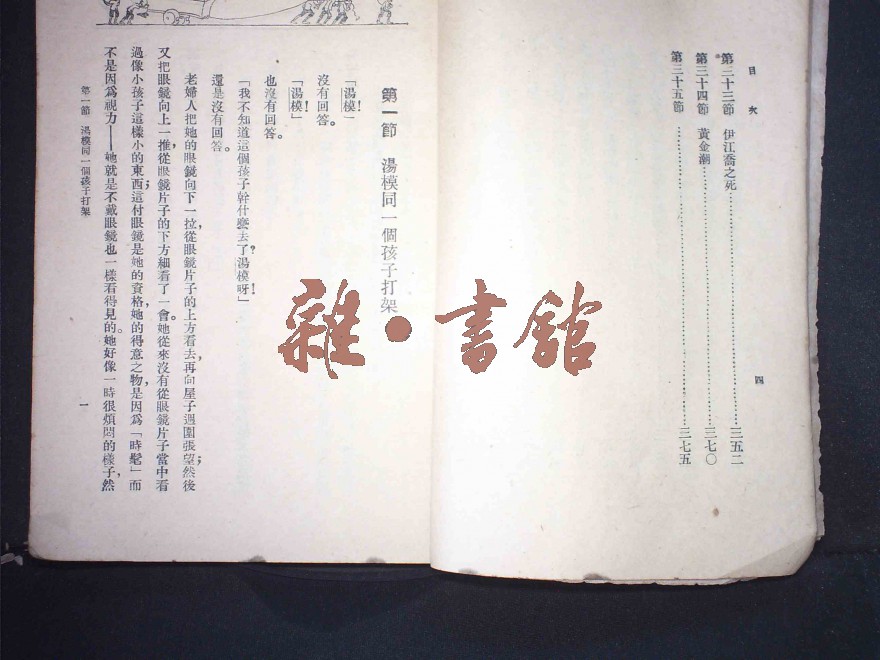 目次
第三十三節　伊江喬之死……三五二
第三十四節　黃金潮……三七〇
第三十五節……三七五
四
第一節　湯模同一個孩子打架
「湯模！」
沒有回答。
「湯模！」
也沒有回答。
「我不知道這個孩子幹什麼去了？湯模呀！」
還是沒有回答。
老婦人把她的眼鏡向下一拉，從眼鏡片子的上方看去，再向屋子週圍張望；然後
又把眼鏡向上一推，從眼鏡片子的下方細看了一會。她從來沒有從眼鏡片子當中看
過像小孩子這樣小的東西；這付眼鏡是她的資格，她的得意之物，是因爲「時髦」而
不是因爲視力——她就是不戴眼鏡也一樣看得見的。她好像一時很煩悶的樣子，然
第一節　湯模同一個孩子打架
一
雜·書館